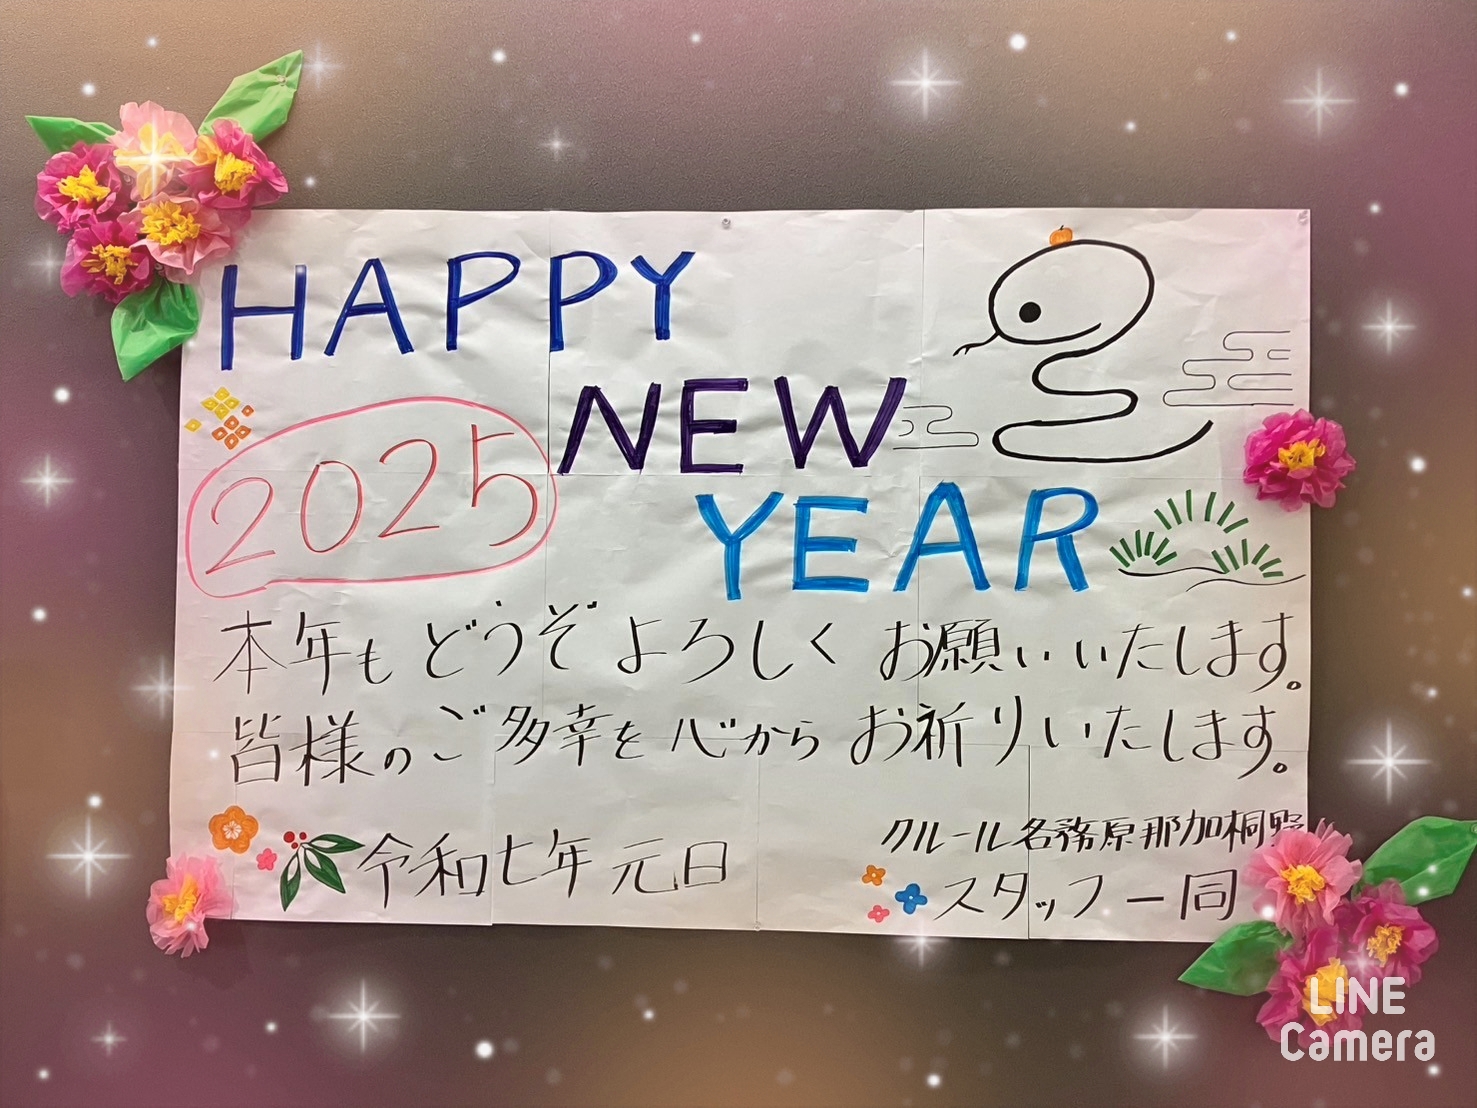 HAPPY
NEW
2025
YEAR
本年もどうぞよろしくお願いいたします。
皆様のご多幸を心からお祈りいたします。
クルール各務原那加桐野
令和七年 元日
スタッフ一同
LINE
Camera